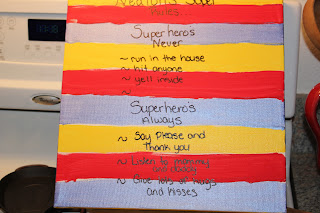 Super
rules...
Superheros
Never
~ run in the house
~ hit anyone
~ yell inside
~
Superheros
Always
~ Say Please and
thank you
~ Listen to mommy
~ Give lots of hugs
and Kisses